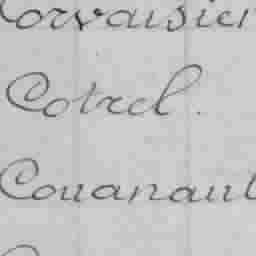 Corvaisier
Cotrel.
Couanault